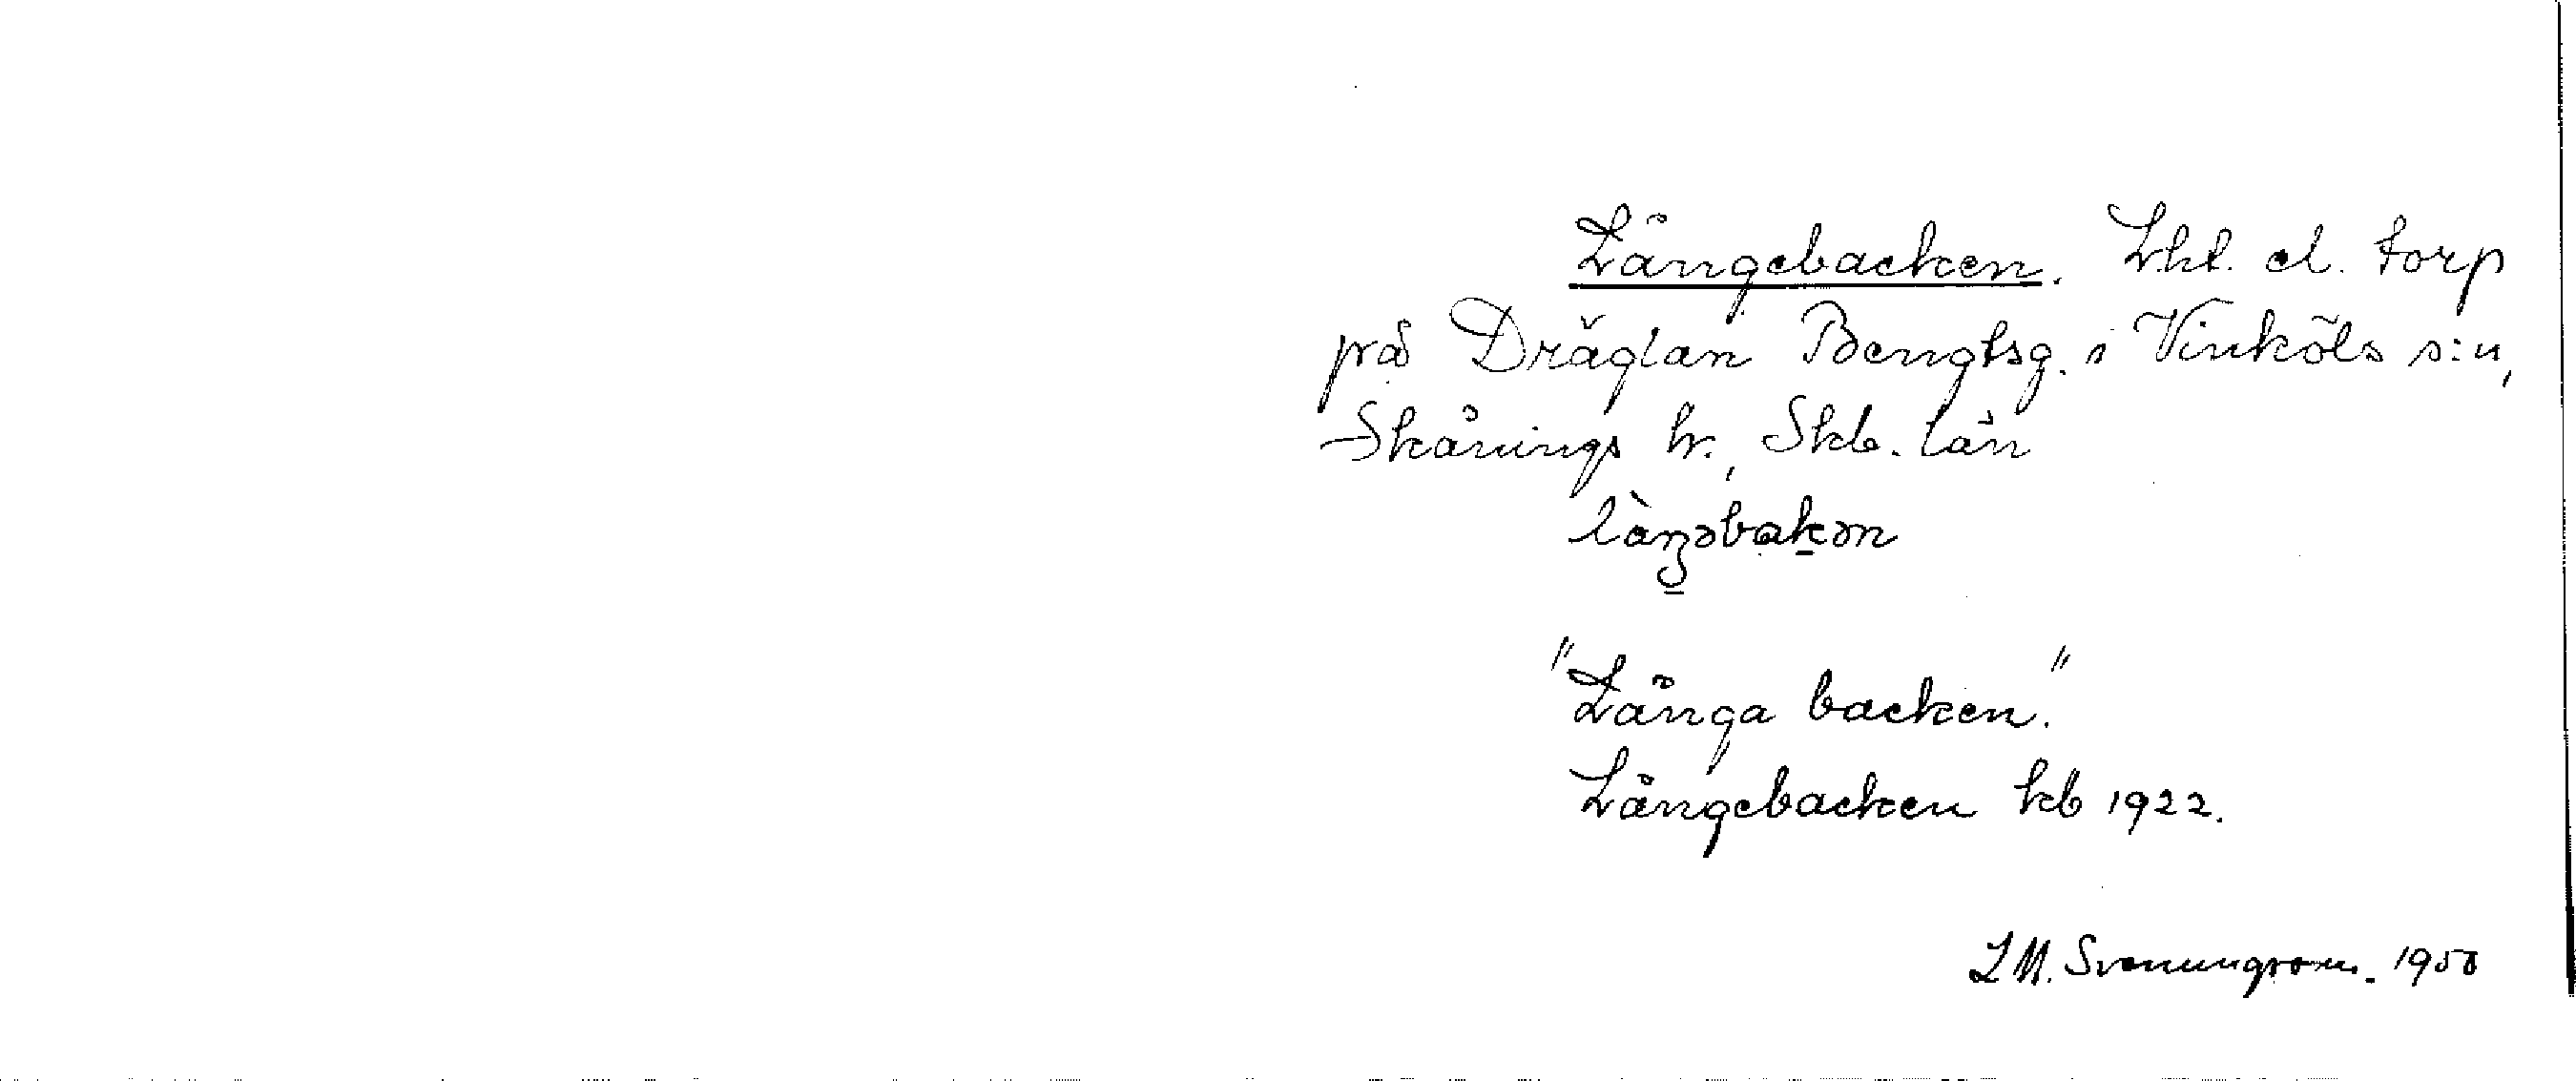 Långebacken. Lht. el. torp
på Dräglan Bengtsg. i Vinköls s:n,
Skånings hr., Skb. län
làŋəbakən
"Långa backen."
Långebacken kb 1922.
L M. Svenungsson. 1950